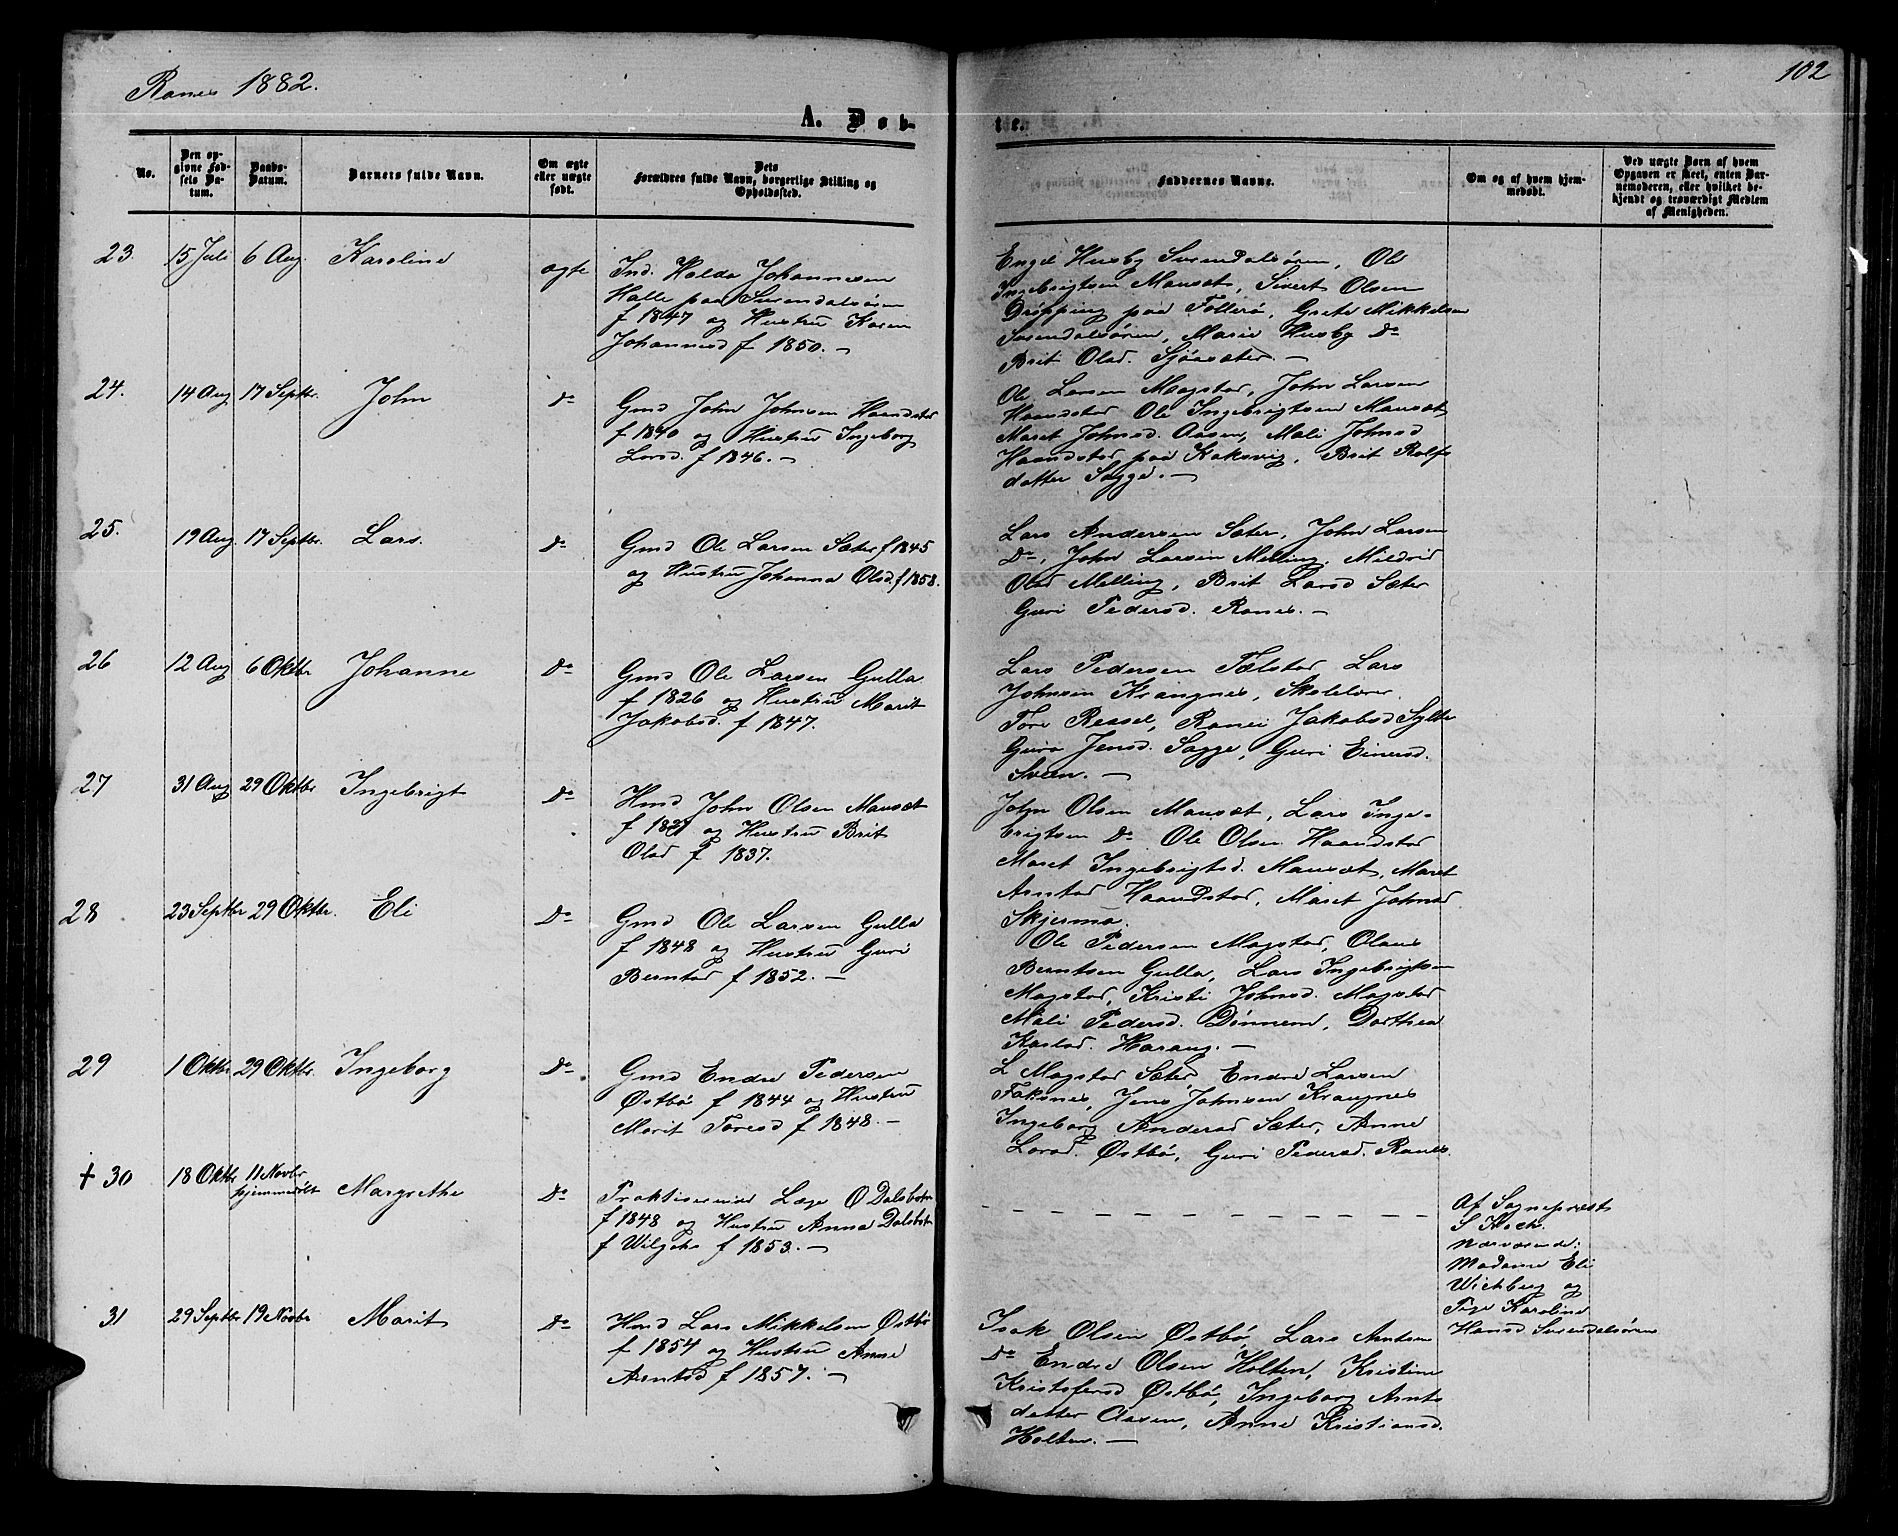 Ranes 1882.
102
A. Døb-
te.
No.
Den op-
givne Fød-
sels Da-
tum.
Daabs-
Datum.
Barnets fulde Navn.
Om ægte
eller uægte
født.
Dets
Forældres fulde Navn, borgerlige Stilling og
Opholdssted.
Faddernes Navne.
Om og af hvem hjem-
medøbt.
Ved uægte Børn af hvem
Opgaven er skeet, enten Bar-
nemoderen, eller hvilket be-
kjendt og troværdigt Medlem
af Menigheden.
23. 15 Juli 6 Aug. Karoline ægte
Ind. Halda Johannesen
Halle paa Surendalsøren
f 1847 og Hustru Karen
Johannesd f 1850. —
Engel Husby Surendalsøren, Ole
Ingebrigtsen Mausæt, Sivert Olsen
Drøpping paa Follerø, Grete Mikkelsen
Surendalsøren, Marie Husby Do
Brit Olsd. Sjøsæter. —
24. 14 Aug 17 Septbr. John Do
Gmd John Johnsen Haandstad
f 1840 og Hustru Ingeborg
Larsd. f 1846. —
Ole Larsen Mogstad, John Larsen
Haandstad Ole Ingebrigtsen Mausæt
Maret Johnsd. Aasen, Mali Johnsd
Haandstad paa Kaksvig, Brit Rolfs
datter Sogge. —
25. 19 Aug. 17 Septbr. Lars. Do
Gmd Ole Larsen Sæter f 1845
og Hustru Johanna Olsd. f 1858.
Lars Andersen Sæter, John Larsen
Do, John Larsen Melling, Mildrid
Olsd Melling, Brit Larsd Sæter
Guri Pedersd. Ranes. —
26 12 Aug 6 Oktbr Johanne Do
Gmd Ole Larsen Gulla
f 1826 og Hustru Marit
Jakobsd. f 1847.
Lars Pedersen Telstad Lars
Johnsen Krangnes, Skolelærer
Tore Ressel, Ranei Jakobsd Sylte
Guro Jensd. Sogge, Guri Einersd.
Svean. —
27 31 Aug 29 Oktbr Ingebrigt Do
Hmd John Olsen Mausæt
og Hustru Brit
Olsd f 1837.
John Olsen Mausæt, Lars Inge-
brigtsen Do Ole Olsen Haandstad
Maret Ingebrigtsd. Mausæt, Maret
Arntsd Haandstad, Maret Johnsd
Skjermo.
28 23 Septbr 29 Oktbr. Eli Do
Gmd Ole Larsen Gulla
f 1848 og Hustru Guri
Berntsd f 1852. —
Ole Pedersen Mogstad, Olaus
Berntsen Gulla, Lars Ingebrigtsen
Mogstad, Kristi Johnsd. Mogstad
Mali Pedersd. Dønnem, Dorthea
Harang. —
29 1 Oktbr 29 Oktbr. Ingeborg Do
Gmd Endre Pedersen
Østbø f 1844 og Hustru
Marit Toresd f 1848. —
L Mogstad Sæter, Endre Larsen
Faksnes, Jens Johnsen Krangnes
Ingeborg Andersd Sæter, Anne
Larsd. Østbø, Guri Pedersd. Ranes.
+ 30 18 Oktbr 11 Novbr
hjemmedøbt Margrethe Do
Praktiserende Læge O Dalsbotn
f 1848 og Hustru Anna Dalsbotn
f f 1853. —
Af Sognepræst
S Koch.
Nærværende:
Madame Eli
Wichberg og
Pige Karoline
Hansd Surendalsøren
31 29 Septbr 19 Novbr Marit Do
Hmd Lars Mikkelsen Østbø
f 1854 og Hustru Anne
Arntsd f 1857. —
Isak Olsen Østbø, Lars Arntsen
Do Endre Olsen Holten, Kristine
Kristofersd Østbø, Ingeborg Arnts
datter Aasen, Anne Kristiansd.
Holten. —